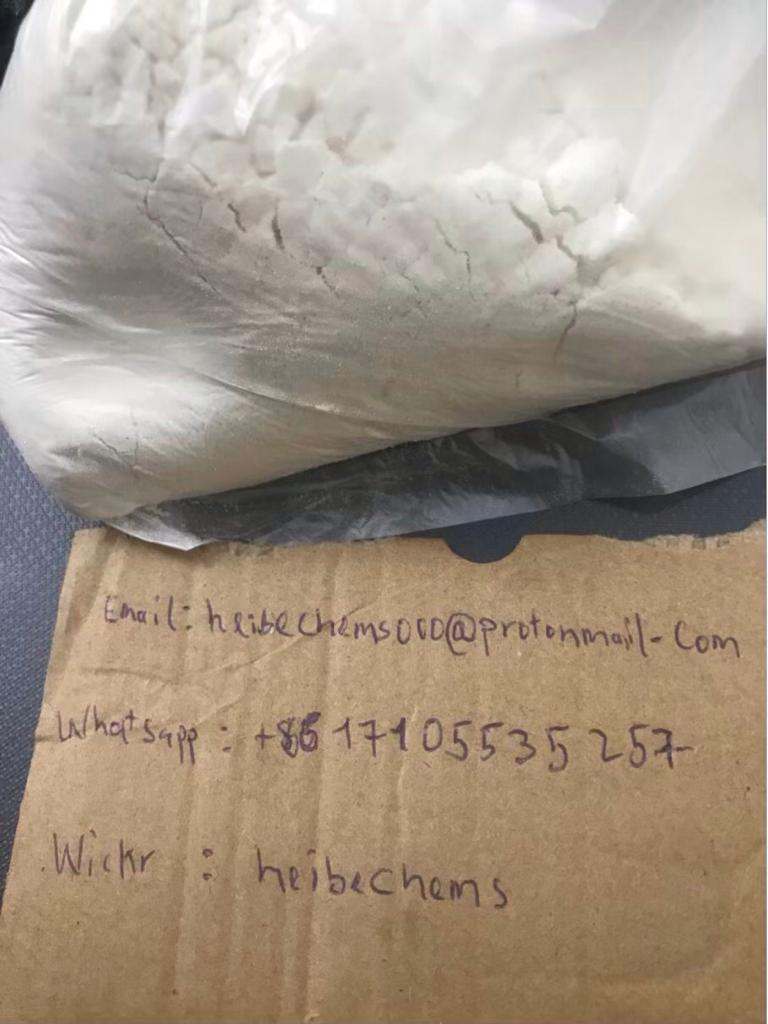 Email: heibechems000@protonmail-Com
Whatsapp : +86 17105535257
Wickr : heibechems